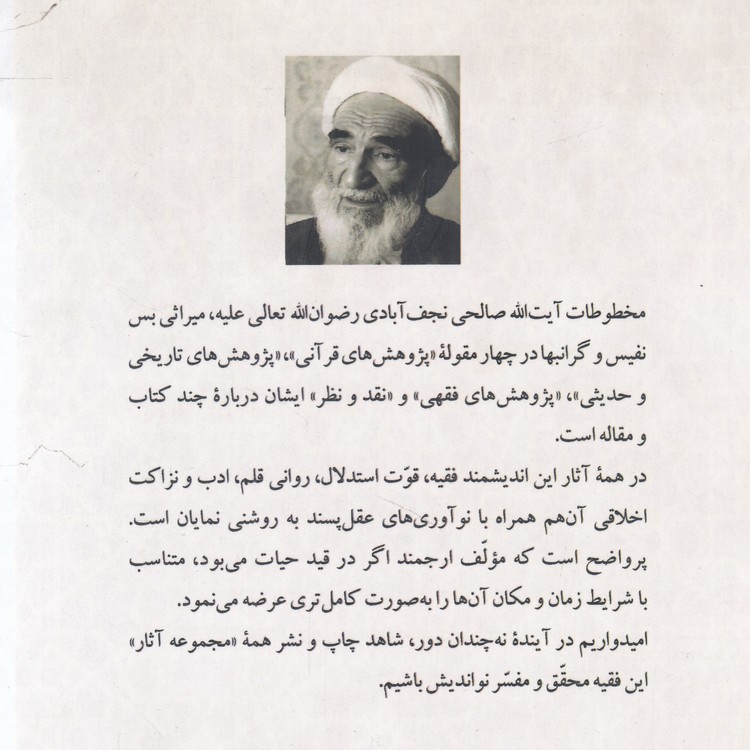 مخطوطات آیت‌الله صالحی نجف‌آبادی رضوان‌الله تعالی علیه، میراثی بس
نفیس و گرانبها در چهار مقولهٔ «پژوهش‌های قرآنی»، «پژوهش‌های تاریخی
و حدیثی»، «پژوهش‌های فقهی» و «نقد و نظر» ایشان دربارهٔ چند کتاب
و مقاله است.
در همهٔ آثار این اندیشمند فقیه، قوّت استدلال، روانی قلم، ادب و نزاکت
اخلاقی آن‌هم همراه با نوآوری‌های عقل‌پسند به روشنی نمایان است.
پرواضح است که مؤلّف ارجمند اگر در قید حیات می‌بود، متناسب
با شرایط زمان و مکان آن‌ها را به‌صورت کامل‌تری عرضه می‌نمود.
امیدواریم در آیندهٔ نه‌چندان دور، شاهد چاپ و نشر همهٔ «مجموعه آثار»
این فقیه محقّق و مفسّر نواندیش باشیم.